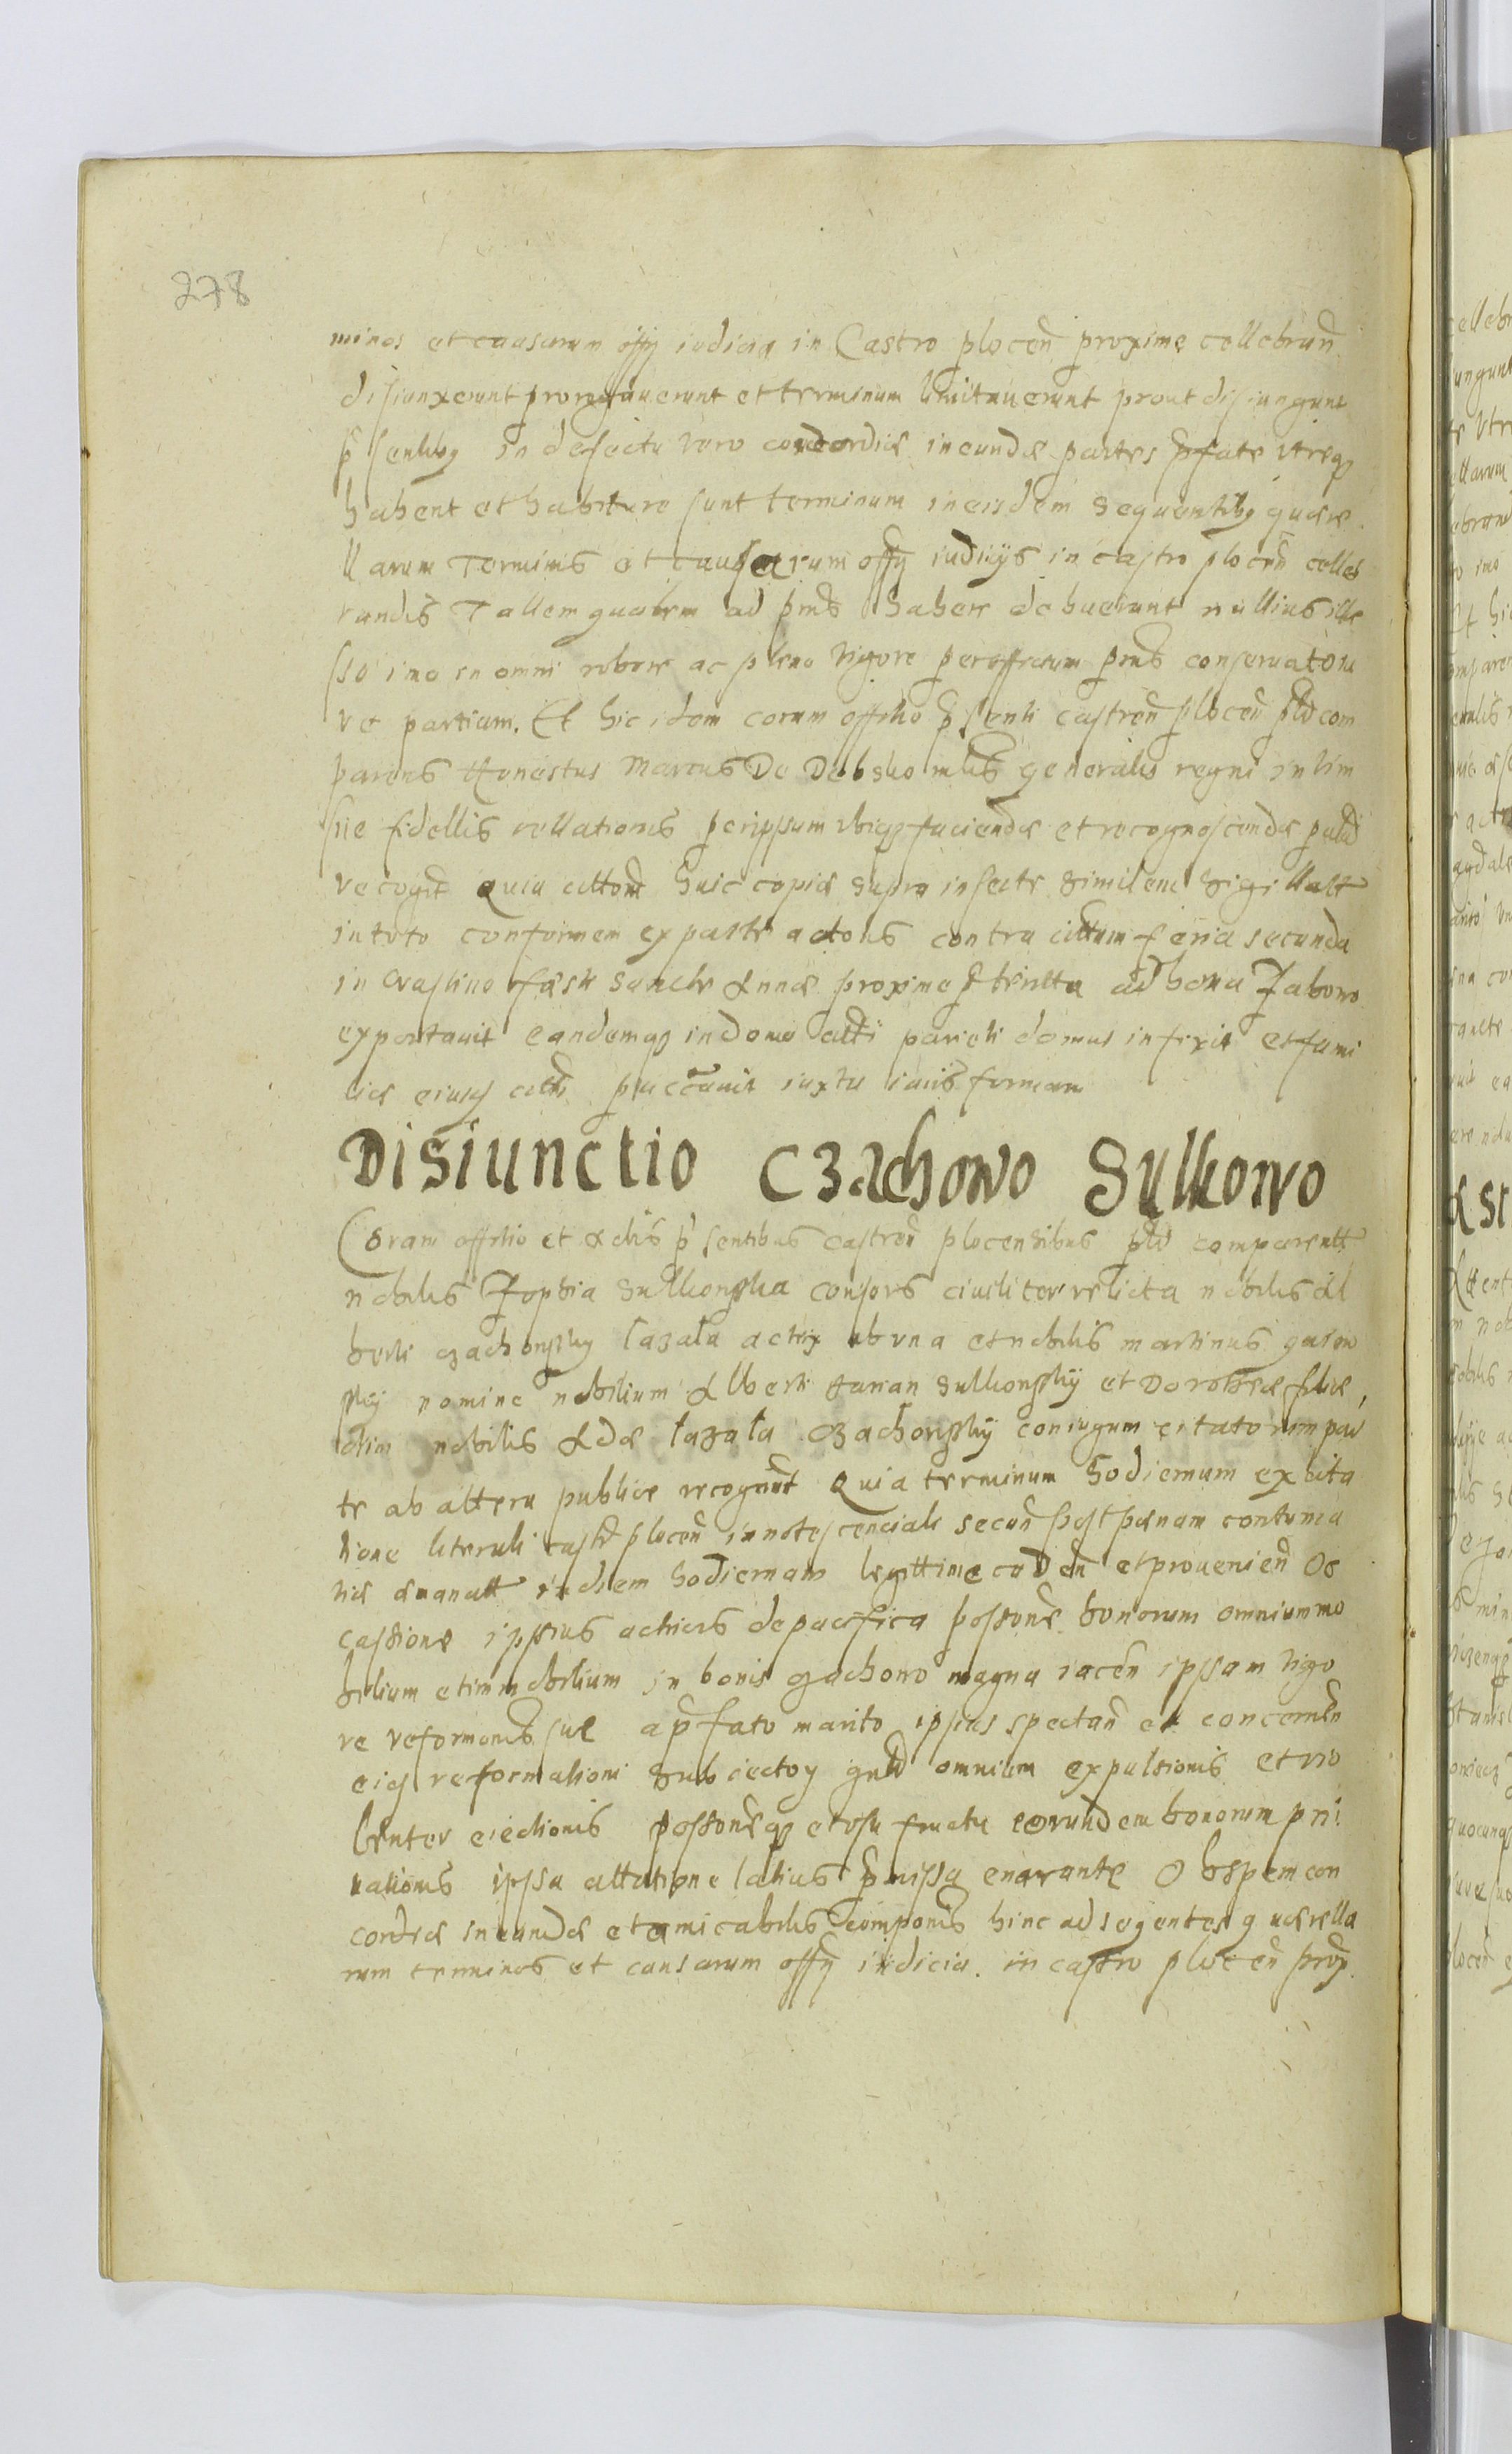 278
minos et causarum offy iudicia in Castro plocen̄ proxime cellebran̄
disiunxerunt prorogauerunt et terminum limitauerunt prout disiungunt
p̄sentibq in defectu vero concordiæ ineundæ partes p̄fate vtreqꝫ
habent et habiture sunt terminum in eisdem sequentibq quære
llarum Terminis et causarum offy iudicijs in castro plocen̄ celleb
randis Tallem qualem ad p̄ns habere debuerunt nullius ille
sso imo in omni robore ac pleno vigore per offitium p̄ns conseruato iu
re partium. Et hic idem coram offitio p̄senti castren̄ plocen̄ pltr com
parens Honestus Marcus De Debsko mlis generalis regni in vim
sue fidellis rellationis per ipsum vbiqꝫ faciendæ et recognoscendæ palid
recogt Quia cittonē huic copiæ supra insertæ similem sigillatt
in toto conformem ex parte actoris contra cittum feria secunda
in crastino festi sancte Annæ proxime p̄teritta ad bona Zabowo
exportauit eandemqꝫ in domo citti parieti domus infixit et fami
liæ eiusq citti placcauit iuxta iuris formam
Disiunctio Czachowo Sulkowo
Coram offitio et Actis p̄sentibus castren̄ plocensibus pltr comparentt
nobilis Zophia Sulkowska consors ciuiliter relicta nobilis Al
berti czachowsky lazata actrix ab vna et nobilis martinus
sky nomine nobilium Alberti Sulkowskÿ et Dorotheæ filiæ
olim nobilis Adæ lazata Czachowskÿ coniugum citatorum par
te ab altera publice recognrt Quia terminum hodiernum ex cita
tione literali castri plocen̄ innotescenciali secun̄ post pænam contuma
tiæ emanatt in diem hodiernam legittime caden̄ et prouenien̄ Oc
cassione ipsius actricis de pacifica possone bonorum omnium mo
bilium et immobilium in bonis czachowo magna iacen̄ ipsam vigo
re reformonis sue a p̄fato marito ipsius spectan̄ et concernen̄
eiq reformationi subiectoq gnltr omnium expulsionis et vio
lenter eiectionis possoneqꝫ et vsu fructu eorundem bonorum pri
uationis ipsa cittatione latius p̄missa enarrante Ob spem con
cordiæ ineundæ et amicabilis componis hinc ad seqentes quærella
rum terminos et causarum offy iudicia in castro plocen̄ prox